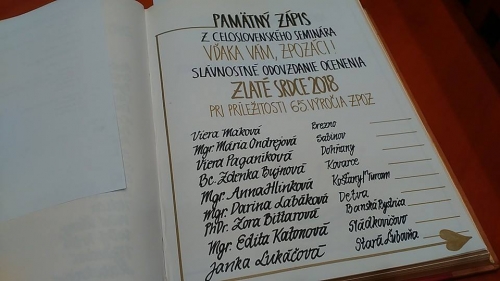 PAMÄTNÝ ZÁPIS
Z CELOSLOVENSKÉHO SEMINÁRA
VĎAKA VÁM, ZPOZÁCI!
SLÁVNOSTNÉ ODOVZDANIE OCENENIA
ZLATÉ SRDCE 2018
PRI PRÍLEŽITOSTI 65 VÝROČIA ZPOZ
Viera Maková Brezno
Mgr. Mária Ondrejová Sabinov
Viera Paganíková Dohňany
Bc. Zdenka Bujnová Kovarce
Mgr. Anna Hlinková Košťany n/Turcom
Mgr. Darina Labáková Detva
PhDr. Zora Bittarová Banská Bystrica
Mgr. Edita Katonová Sládkovičovo
Janka Lukáčová Stará Ľubovňa